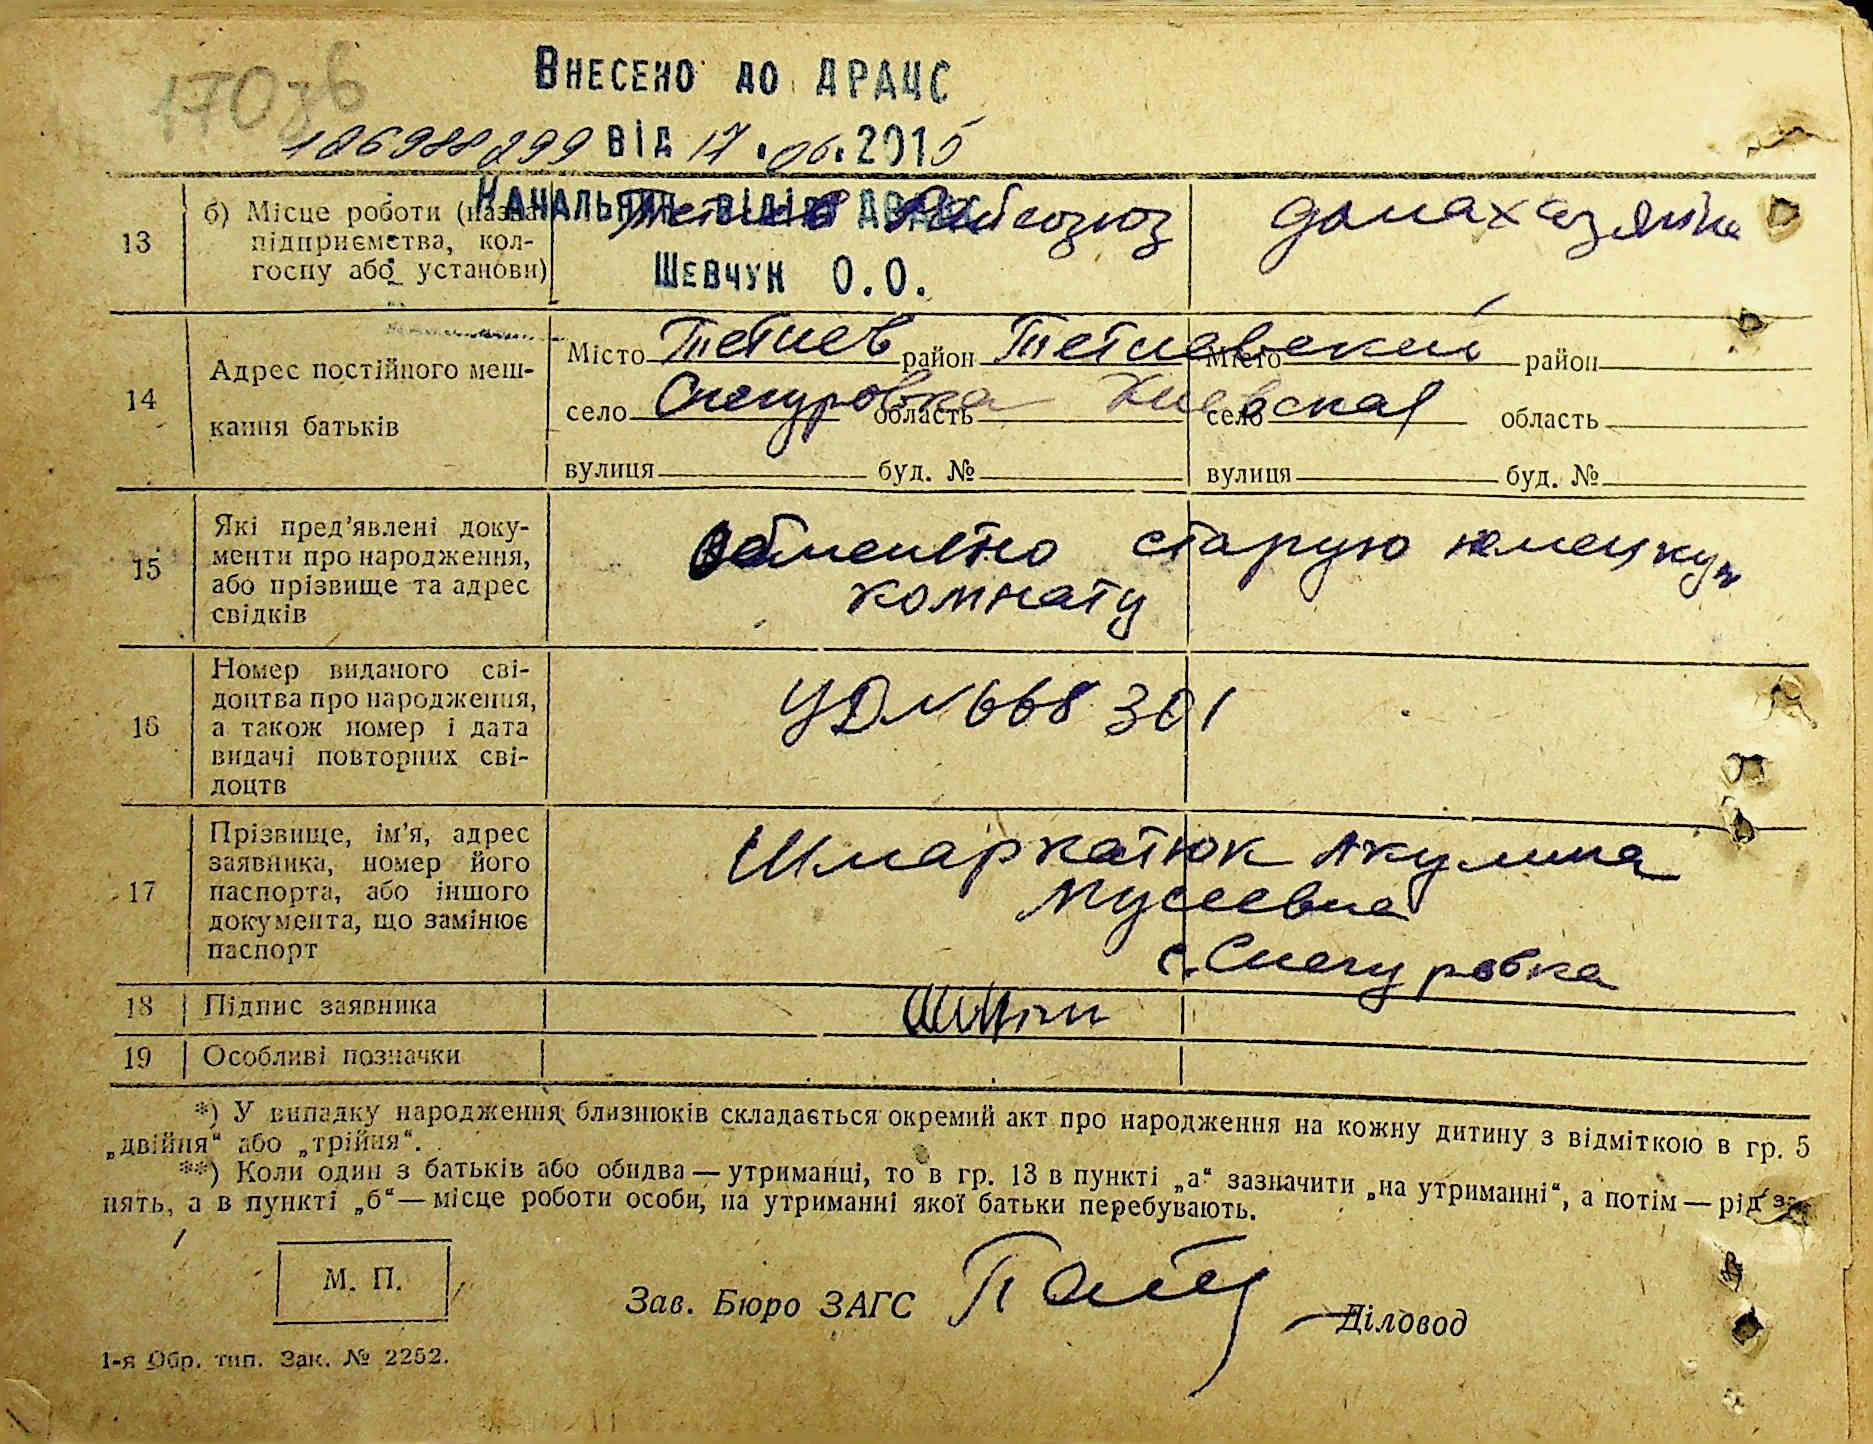 170зв
ВНЕСЕНО ДО ДРАЦС
від 17.06.2015
НАЧАЛЬНИК ВІДІЛУ ДРАЦС
ШЕВЧУК О.О.
13 б) Місце роботи (назва підприємства, колгоспу або установи) Тетиев Райсоюз домахазяйка
14 Адрес постійного мешкання батьків
Місто Тетиев район Тетиевский Місто район
село Снегуровка область Киевская село область
вулиця буд. № вулиця буд. №
15 Які пред’явлені документи про народження, або прізвище та адрес свідків
старую
комнату
16 Номер виданого свідоцтва про народження, а також номер і дата видачі повторних свідоцтв
УД № 668301
17 Прізвище, ім’я, адрес заявника, номер його паспорта, або іншого документа, що замінює паспорт
Шмаркатюк Акулина
Мусеевна
с. Снегуровка
18 Підпис заявника
19 Особливі позначки
*) У випадку народження близнюків складається окремий акт про народження на кожну дитину з відміткою в гр. 5
„двійня“ або „трійня“.
**) Коли один з батьків або обидва — утриманці, то в гр. 13 в пункті „а“ зазначити „на утриманні“, а потім — рід за-
нять, а в пункті „б“ — місце роботи особи, на утриманні якої батьки перебувають.
М. П.
Зав. Бюро ЗАГС
Діловод
1-я Обр. тип. Зак. № 2252.